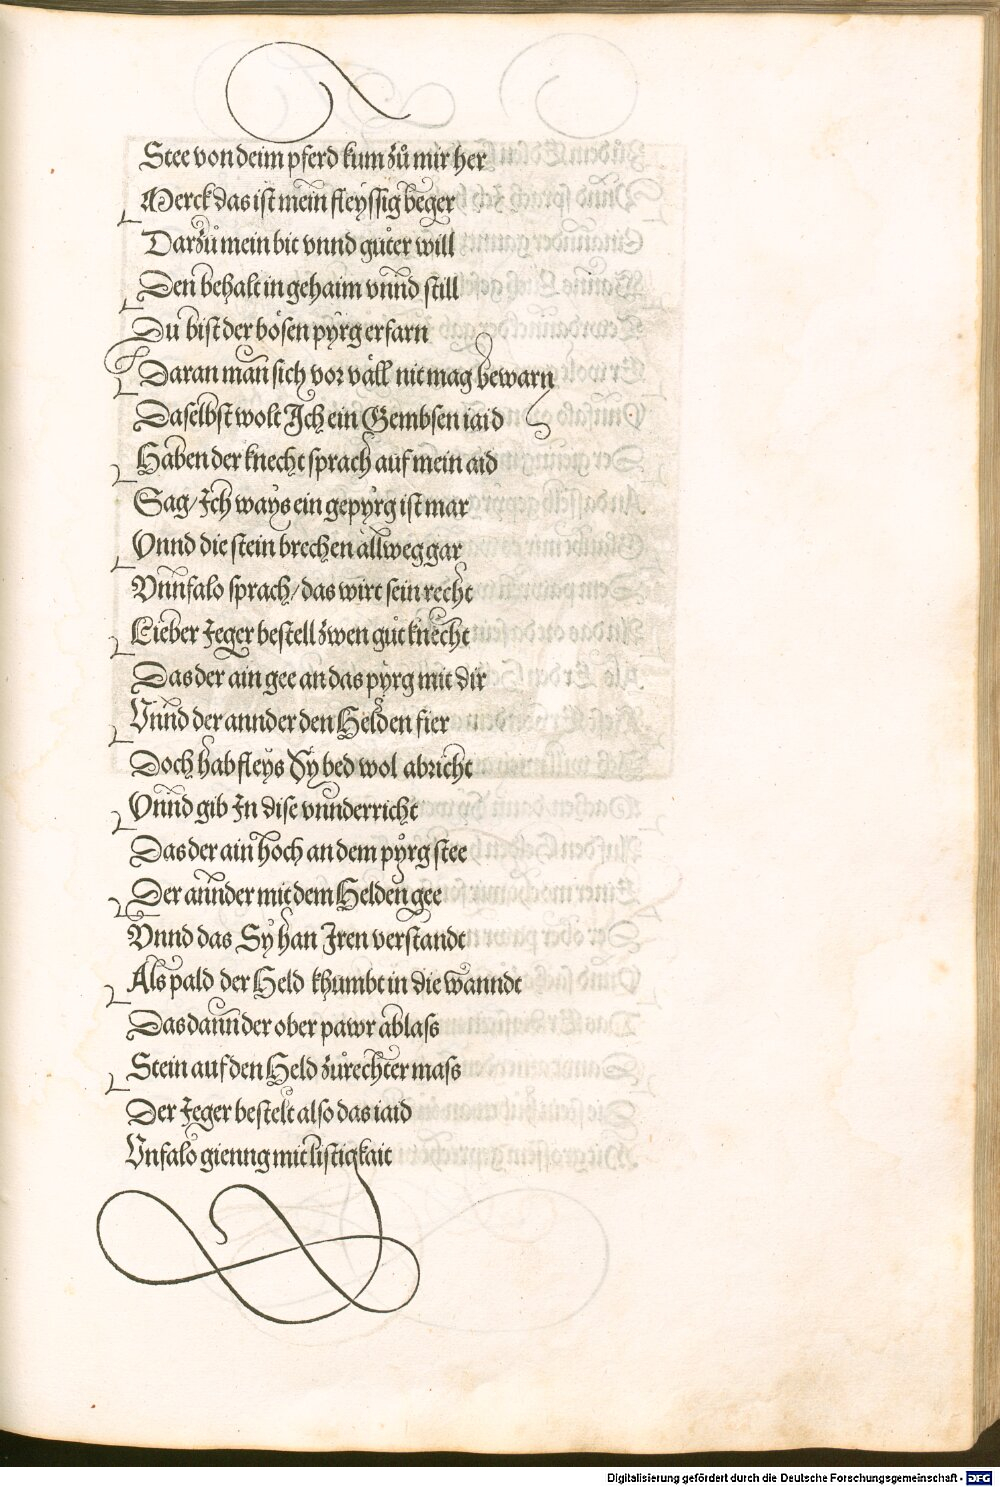 Stee von deim pferd kum zů mir her
Merck das ist mein fleyssig beger
Darzů mein bit vnnd gůter will
Den behalt in gehaim vnnd still
Du bist der bösen pÿrg erfarn
Daran man sich vor väll nit mag bewarn
Daselbst wolt Ich ein Gembsen iaid
Haben der knecht sprach auf mein aid
Sag/Ich ways ein gepürg ist mar
Vnnd die stein brechen allweg gar
Vnnfalo sprach/das wirt sein recht
Lieber Jeger bestell zwen gůt knecht
Das der ain gee an das pÿrg mit dir
Vnnd der annder den Helden fier
Doch hab fleys Sy bed wol abricht
Vnnd gib In dise vnnderricht
Das der ain hoch an dem pÿrg stee
Der annder mit dem Helden gee
Vnnd das Sy han Iren verstandt
Als pald der Held khumbt in die wanndt
Das dann der ober pawr ablass
Stein auf den Held zůrechter mass
Der Jeger bestelt also das iaid
Vnfalo gienng mit listigkait
Digitalisierung gefördert durch die Deutsche Forschungsgemeinschaft - DFG